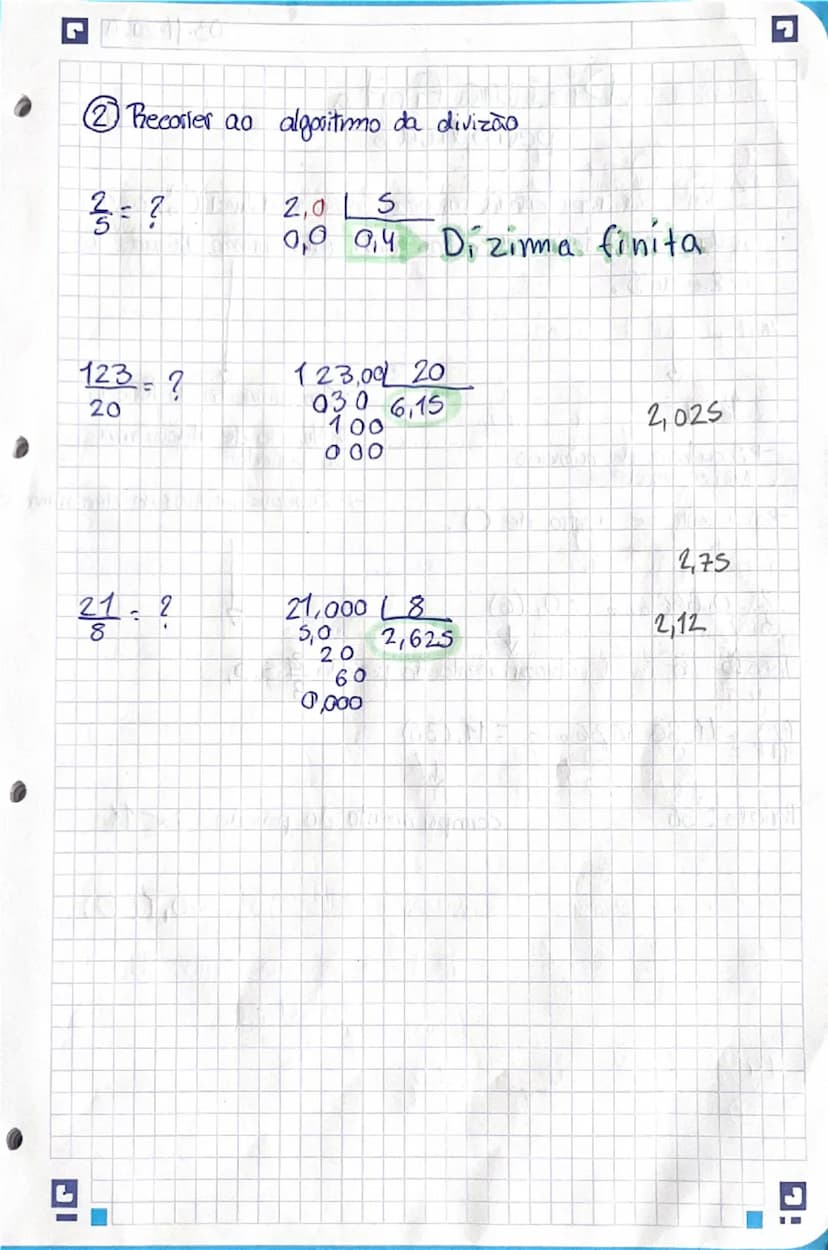 ② Recorrer ao algoritmo da divizão
2/5 = ? 2,0 | 5
0,0 0,4 Dízima finita
123/20 = ? 123,00 | 20
030 6,15
100
000
2,025
2,75
21/8 = ? 21,000 | 8
5,0 2,625
20
60
0,000
2,12